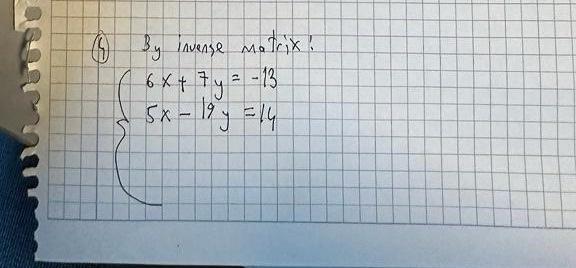 4 By inverse matrix!
6x + 7y = -13
5x - 19y = 14